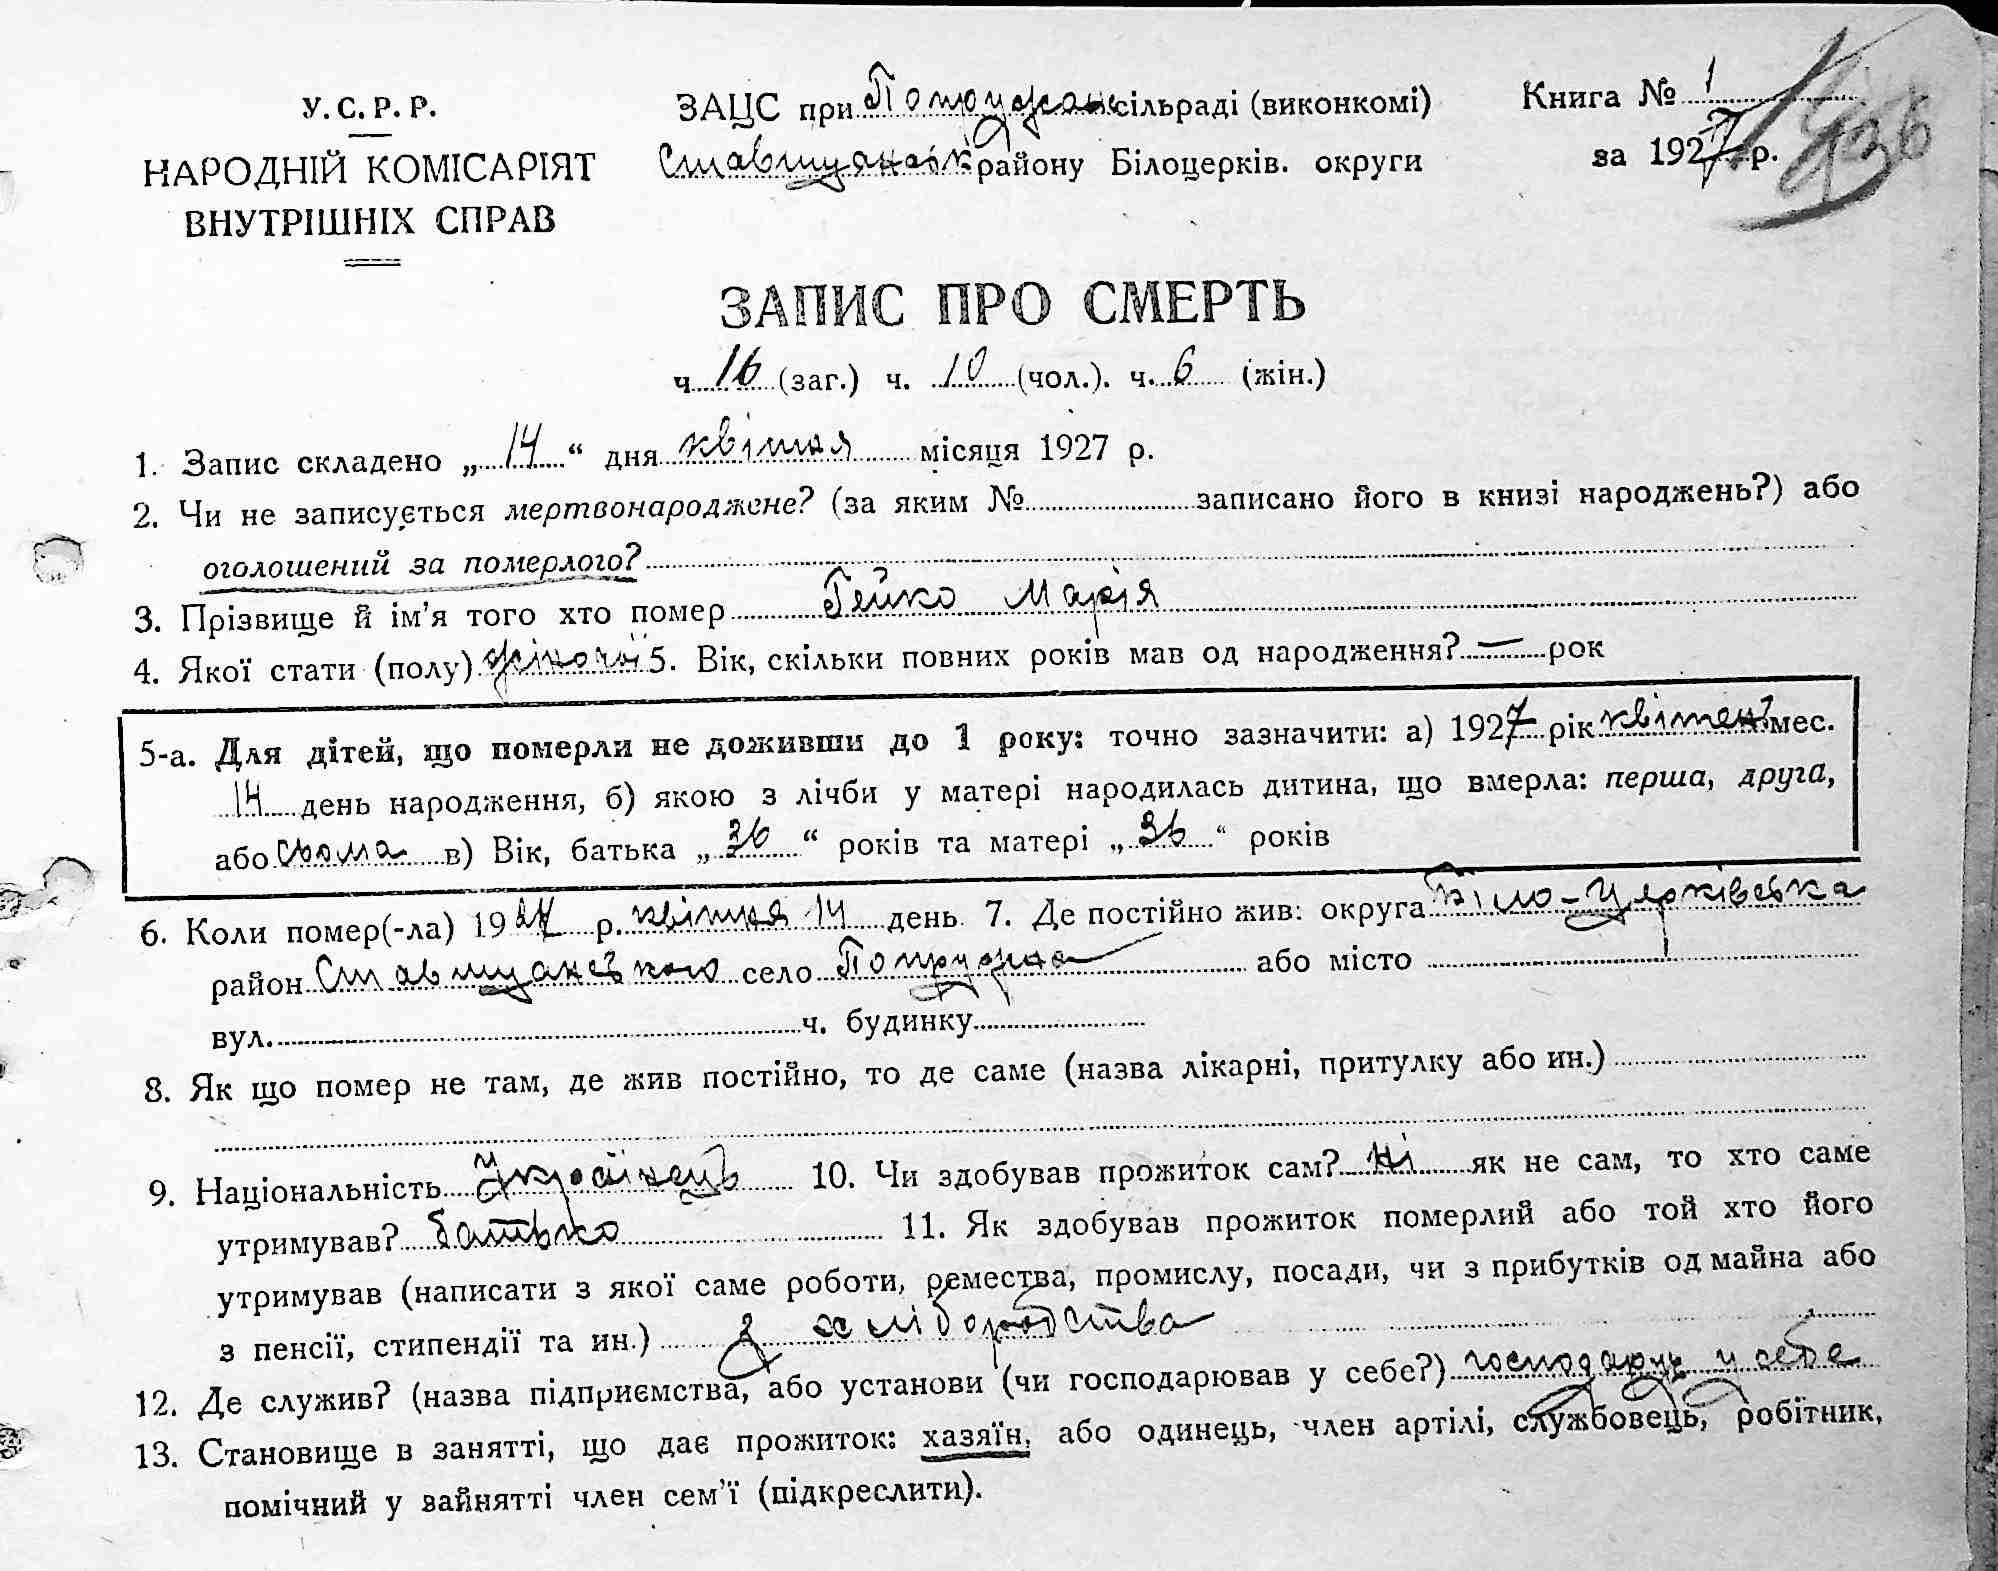 У.С.Р.Р.
НАРОДНІЙ КОМІСАРІЯТ
ВНУТРІШНІХ СПРАВ
ЗАЦС при сільраді (виконкомі)
Ставищанськ району Білоцерків. округи
Книга № 1
за 1927 р.
136
ЗАПИС ПРО СМЕРТЬ
ч 16 (заг.) ч. 10 (чол.). ч. 6 (жін.)
1. Запис складено „ 14 “ дня квітня місяця 1927 р.
2. Чи не записується мертвонароджене? (за яким № записано його в книзі народжень?) або
оголошений за померлого?
3. Прізвище й ім’я того хто помер Гейко Марія
4. Якої стати (полу) жіночої 5. Вік, скільки повних років мав од народження? — рок
5-а. Для дітей, що померли не доживши до 1 року: точно зазначити: а) 1927 рік квітень мес.
14 день народження, б) якою з лічби у матері народилась дитина, що вмерла: перша, друга,
або сьома в) Вік, батька „ 36 “ років та матері „ 36 “ років
6. Коли помер(-ла) 1927 р. квітня 14 день 7. Де постійно жив: округа Біло-Церківська
район Ставищанського село Попружна або місто
вул. ч. будинку
8. Як що помер не там, де жив постійно, то де саме (назва лікарні, притулку або ин.)
9. Національність Українець 10. Чи здобував прожиток сам? ні як не сам, то хто саме
утримував? батько 11. Як здобував прожиток померлий або той хто його
утримував (написати з якої саме роботи, ремества, промислу, посади, чи з прибутків од майна або
з пенсії, стипендії та ин.) з хліборобства
12. Де служив? (назва підприємства, або установи (чи господарював у себе?) господарує у себе
13. Становище в занятті, що дає прожиток: хазяїн, або одинець, член артілі, службовець, робітник,
помічний у зайнятті член сем’ї (підкреслити).